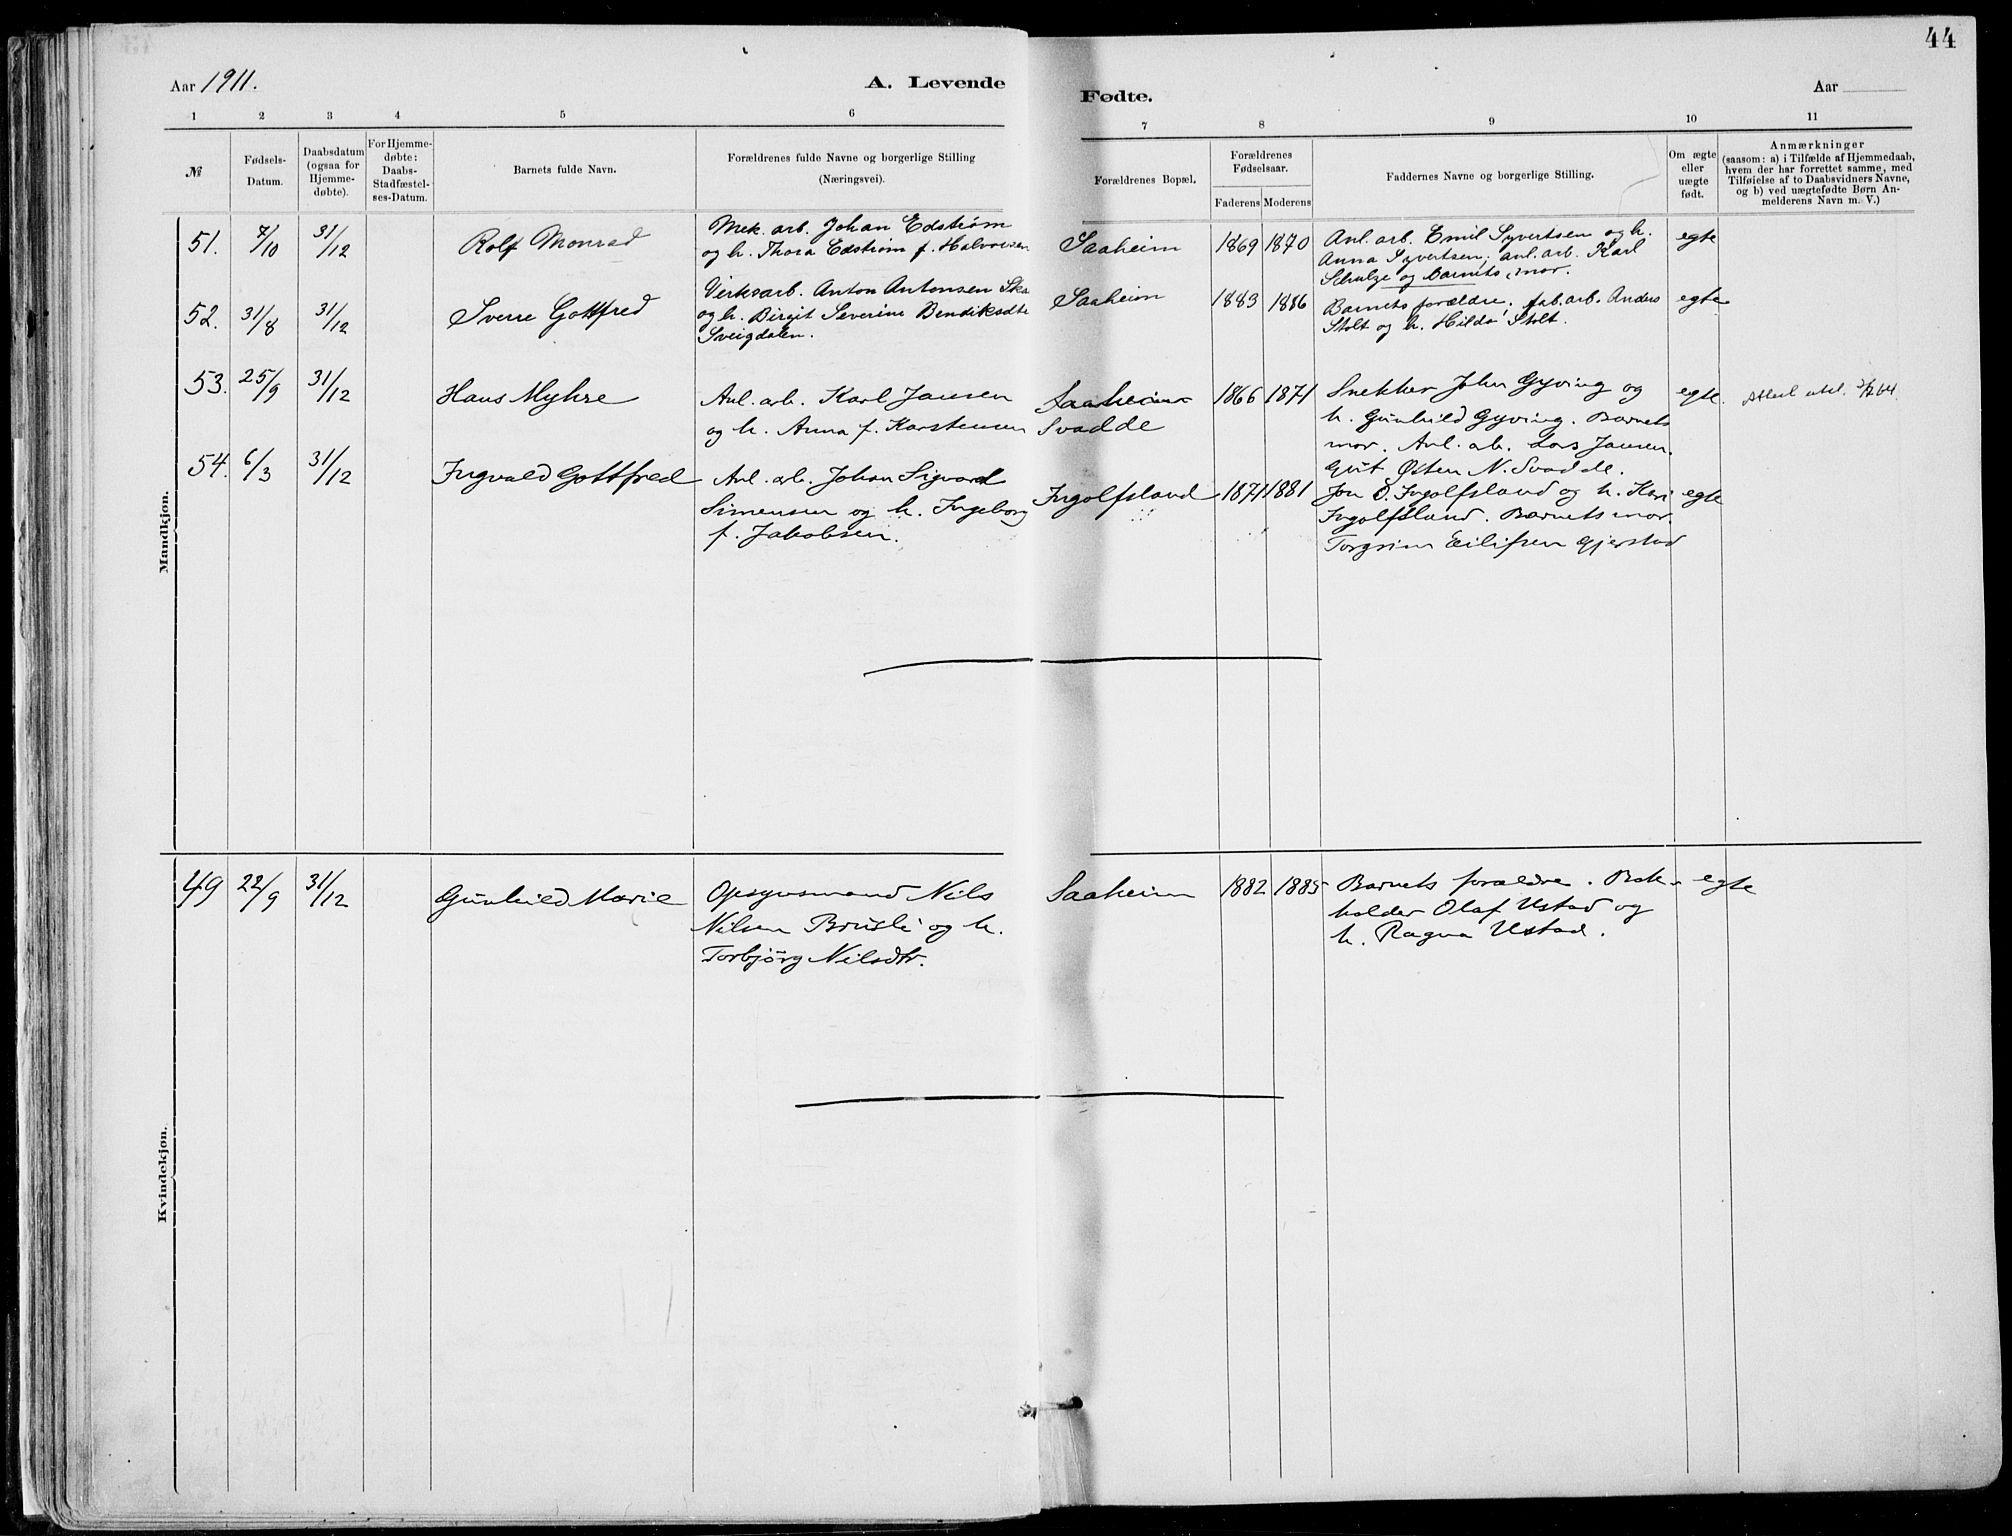 44
Aar 1911.
A. Levende
Fødte.
Aar
1 2 3 4 5 6 7 8 9 10 11
№
Fødsels-
Datum.
Daabsdatum
(ogsaa for
Hjemme-
døbte).
For Hjemme-
døbte:
Daabs-
Stadfæstel-
ses-Datum.
Barnets fulde Navn.
Forældrenes fulde Navne og borgerlige Stilling
(Næringsvei).
Forældrenes Bopæl.
Forældrenes
Fødselsaar.
Faderens Moderens
Faddernes Navne og borgerlige Stilling.
Om ægte
eller
uægte
født.
Anmærkninger
(saasom: a) i Tilfælde af Hjemmedaab,
hvem der har forrettet samme, med
Tilføielse af to Daabsvidners Navne,
og b) ved uægtefødte Børn An-
melderens Navn m. V.)
Mandkjøn.
51. 7/10 31/12 Rolf Monrad
Mek. arb. Johan Edstrøm
og h. Thora Edstrøm f. Halvorsen
Saaheim 1869 1870
Anl. arb. Emil Syvertsen og h.
Anna Syvertsen, anl. arb. Karl
Schulze og barnets mor.
egte
52. 31/8 31/12 Sverre Gottfred
Verksarb. Anton Antonsen Ska
og h. Birgit Severine Bendiksdtr
Sveigdalen.
Saaheim 1883 1886
Barnets forældre, fab. arb. Anders
Stolt og h. Hilda Stolt.
egte
53. 25/9 31/12 Hans Myhre
Anl. arb. Karl Jansen
og h. Anna f. Karstensen
Saaheim
Svadde
1866 1871
Snekker John Gyving og
h. Gunhild Gyving. Barnets
mor. Anl. arb. Lars Jansen.
Gut Østen N. Svadde.
egte.
Attest utst. 64
54. 6/3 31/12 Ingvald Gottfred
Anl. arb. Johan Sigvard
Simensen og h. Ingeborg
f. Jakobsen.
Ingolfsland 1871 1881
Jon O. Ingolfsland og h. Kari
Ingolfsland. Barnets mor.
Torgrim Eilifsen Gjerstad
egte
Kvindekjøn.
49 22/9 31/12 Gunhild Marie
Opsynsmand Nils
Nilsen Brusli og h.
Torbjörg Nilsdtr.
Saaheim 1882 1885
Barnets forældre. Bok-
holder Olaf Ustad og
h. Ragna Ustad.
egte